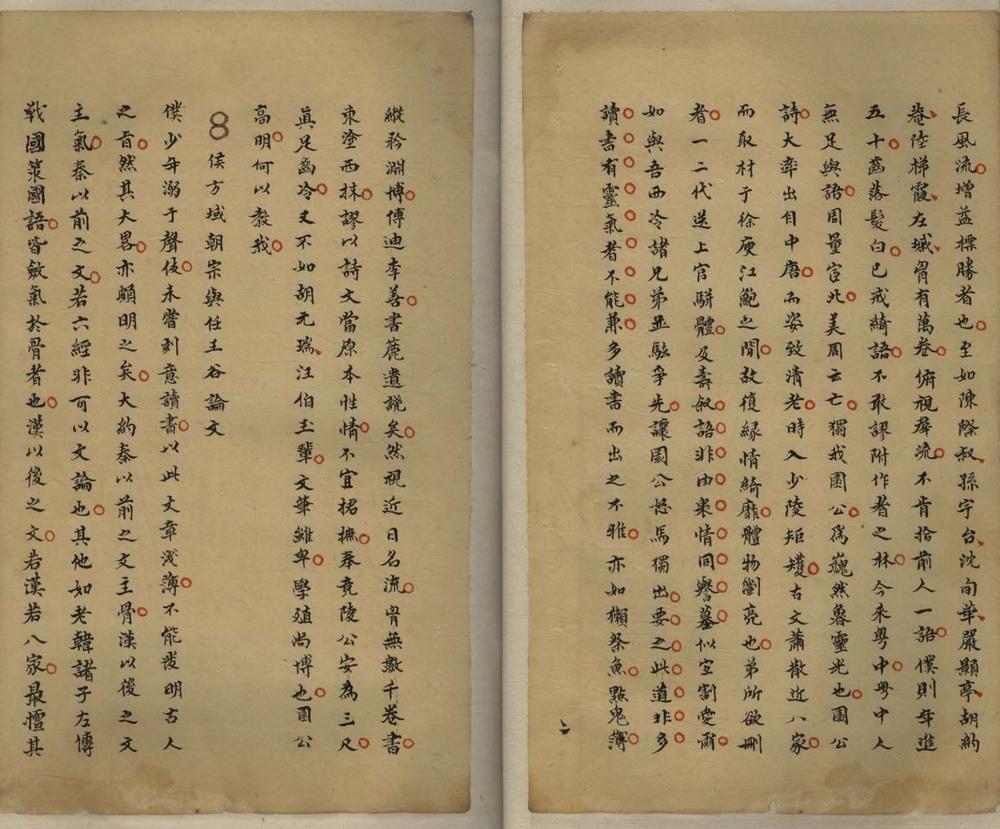 長風流增益標勝者也至如陳際叔孫宇台沈甸華嚴顥亭胡約
菴陸梯霞左城骨有萬卷俯視羣流不肯拾前人一語僕則年進
五十齒落髮白已戒綺語不敢謬附作者之林今來粤中粤中人
無足與語周量宦北美周云亡獨我園公為巍然魯靈光也園公
詩大率出自中唐而姿致清老時入少陵矩矱古文蕭散近八家
而取材于徐庾江鮑之間故復緣情綺靡體物瀏亮也弟所欲刪
者一二代送上官駢體及壽叙語非由衷情同譽墓似宜割愛爾
如與吾西泠諸兄弟並駈爭先讓園公怒馬獨出要之此道非多
讀書有靈氣者不能兼多讀書而出之不雅亦如獺祭魚點鬼簿
縱矜淵博傅迪李善書簏遺譏矣然視近日名流胷無數千卷書
東塗西抹謬以詩文當原本性情不宜捃摭奉竟陵公安為三尺
真足齒冷又不如胡元瑞汪伯玉輩文華雖卑學殖尚博也園公
高明何以教我
8 侯方域朝宗與任王谷論文
僕少年溺于聲伎未嘗刻意讀書以此文章淺薄不能發明古人
之旨然其大畧亦頗明之矣大約秦以前之文主骨漢以後之文
主氣秦以前之文若六經非可以文論也其他如老韓諸子左傳
戰國策國語皆斂氣於骨者也漢以後之文若漢若八家最擅其